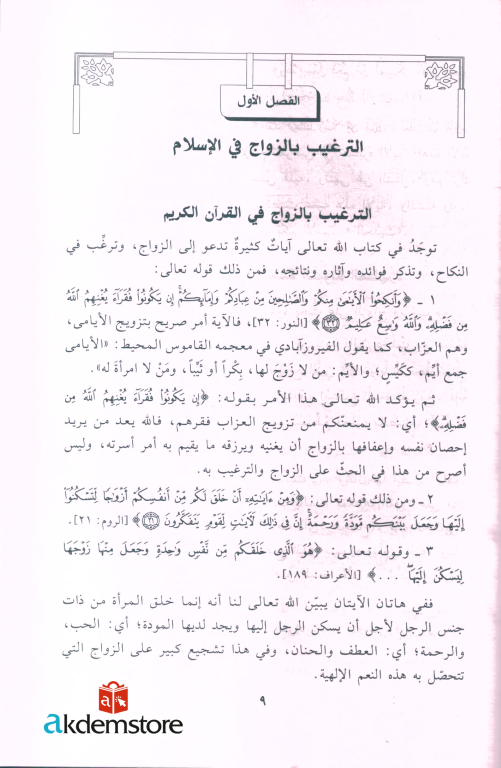 الفصل الأول
الترغيب بالزواج في الإسلام
الترغيب بالزواج في القرآن الكريم
توجَدُ في كتاب الله تعالى آياتٌ كثيرةٌ تدعو إلى الزواج، وترغِّب في
النكاح، وتذكر فوائده وآثاره ونتائجه، فمن ذلك قوله تعالى:
١ - ﴿وَأَنكِحُوا۟ ٱلْأَيَـٰمَىٰ مِنكُمْ وَٱلصَّـٰلِحِينَ مِنْ عِبَادِكُمْ وَإِمَآئِكُمْ إِن يَكُونُوا۟ فُقَرَآءَ يُغْنِهِمُ ٱللَّهُ
مِن فَضْلِهِۦ وَٱللَّهُ وَٰسِعٌ عَلِيمٌ ﴿٣٢﴾﴾ [النور: ٣٢]، فالآية أمر صريح بتزويج الأيامى،
وهم العزّاب، كما يقول الفيروزآبادي في معجمه القاموس المحيط: «الأيامى
جمع أيِّم، ككَيِّس؛ والأيِّم: من لا زَوْجَ لها، بِكْراً أو ثَيِّباً، ومَنْ لا امرأةَ له».
ثم يؤكد الله تعالى هذا الأمر بقوله: ﴿إِن يَكُونُوا۟ فُقَرَآءَ يُغْنِهِمُ ٱللَّهُ مِن
فَضْلِهِۦ﴾؛ أي: لا يمنعنّكم من تزويج العزاب فقرهم، فالله يعد من يريد
إحصان نفسه وإعفافها بالزواج أن يغنيه ويرزقه ما يقيم به أمر أسرته، وليس
أصرح من هذا في الحثّ على الزواج والترغيب به.
٢ - ومن ذلك قوله تعالى: ﴿وَمِنْ ءَايَـٰتِهِۦٓ أَنْ خَلَقَ لَكُم مِّنْ أَنفُسِكُمْ أَزْوَٰجًا لِّتَسْكُنُوٓا۟
إِلَيْهَا وَجَعَلَ بَيْنَكُم مَّوَدَّةً وَرَحْمَةً إِنَّ فِى ذَٰلِكَ لَـَٔايَـٰتٍ لِّقَوْمٍ يَتَفَكَّرُونَ ﴿٢١﴾﴾ [الروم: ٢١].
٣ - وقوله تعالى: ﴿هُوَ ٱلَّذِى خَلَقَكُم مِّن نَّفْسٍ وَٰحِدَةٍ وَجَعَلَ مِنْهَا زَوْجَهَا
لِيَسْكُنَ إِلَيْهَا ...﴾ [الأعراف: ١٨٩].
ففي هاتان الآيتان يبيّن الله تعالى لنا أنه إنما خلق المرأة من ذات
جنس الرجل لأجل أن يسكن الرجل إليها ويجد لديها المودة؛ أي: الحب،
والرحمة؛ أي: العطف والحنان، وفي هذا تشجيع كبير على الزواج التي
تتحصّل به هذه النعم الإلهية.
٩
akdemstore